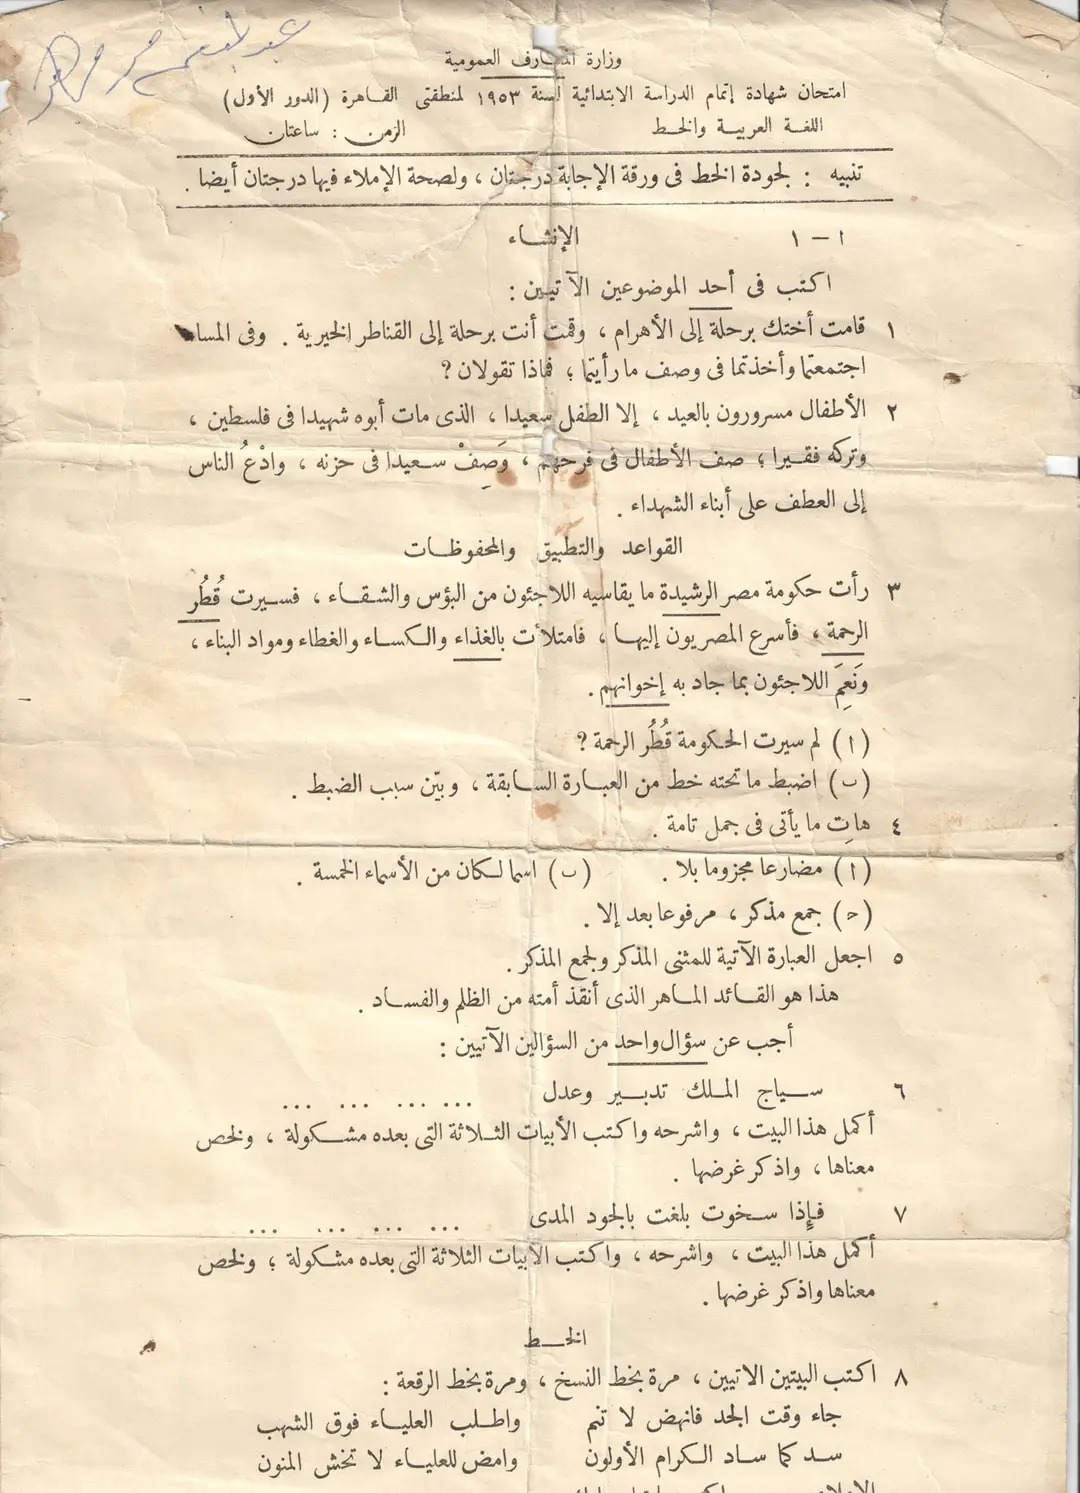 وزارة المعارف العمومية
امتحان شهادة إتمام الدراسة الابتدائية لسنة ١٩٥٣ لمنطقتى القاهرة (الدور الأول)
اللغة العربية والخط الزمن : ساعتان
تنبيه : لجودة الخط فى ورقة الإجابة درجتان ، ولصحة الإملاء فيها درجتان أيضا .
١ – ١ الإنشاء
اكتب فى أحد الموضوعين الآتيين :
١ قامت أختك برحلة إلى الأهرام ، وقمت أنت برحلة إلى القناطر الخيرية . وفى المساء
اجتمعتما وأخذتما فى وصف ما رأيتما ؛ فماذا تقولان ؟
٢ الأطفال مسرورون بالعيد ، إلا الطفل سعيدا ، الذى مات أبوه شهيدا فى فلسطين ،
وتركه فقيرا ؛ صف الأطفال فى فرحهم ، وَصِفْ سعيدا فى حزنه ، وادْعُ الناس
إلى العطف على أبناء الشهداء .
القواعد والتطبيق والمحفوظات
٣ رأت حكومة مصر الرشيدة ما يقاسيه اللاجئون من البؤس والشقاء ، فسيرت قُطُر
الرحمة ، فأسرع المصريون إليها ، فامتلأت بالغذاء والكساء والغطاء ومواد البناء ،
وَنَعِمَ اللاجئون بما جاد به إخوانهم .
(ا) لم سيرت الحكومة قُطُر الرحمة ؟
(ب) اضبط ما تحته خط من العبارة السابقة ، وبيّن سبب الضبط .
٤ هات ما يأتى فى جمل تامة .
(ا) مضارعا مجزوما بلا . (ب) اسما لكان من الأسماء الخمسة .
(ح) جمع مذكر ، مرفوعا بعد إلا .
٥ اجعل العبارة الآتية للمثنى المذكر ولجمع المذكر .
هذا هو القائد الماهر الذى أنقذ أمته من الظلم والفساد .
أجب عن سؤال واحد من السؤالين الآتيين :
٦ سياج الملك تدبير وعدل ... ... ... ...
أكمل هذا البيت ، واشرحه واكتب الأبيات الثلاثة التى بعده مشكولة ، ولخص
معناها ، واذكر غرضها .
٧ فإذا سخوت بلغت بالجود المدى ... ... ... ...
أكمل هذا البيت ، واشرحه ، واكتب الأبيات الثلاثة التى بعده مشكولة ؛ ولخص
معناها واذكر غرضها .
الخط
٨ اكتب البيتين الاتيين ، مرة بخط النسخ ، ومرة بخط الرقعة :
جاء وقت الجد فانهض لا تنم واطلب العلياء فوق الشهب
سد كما ساد الكرام الأولون وامض للعلياء لا تخش المنون